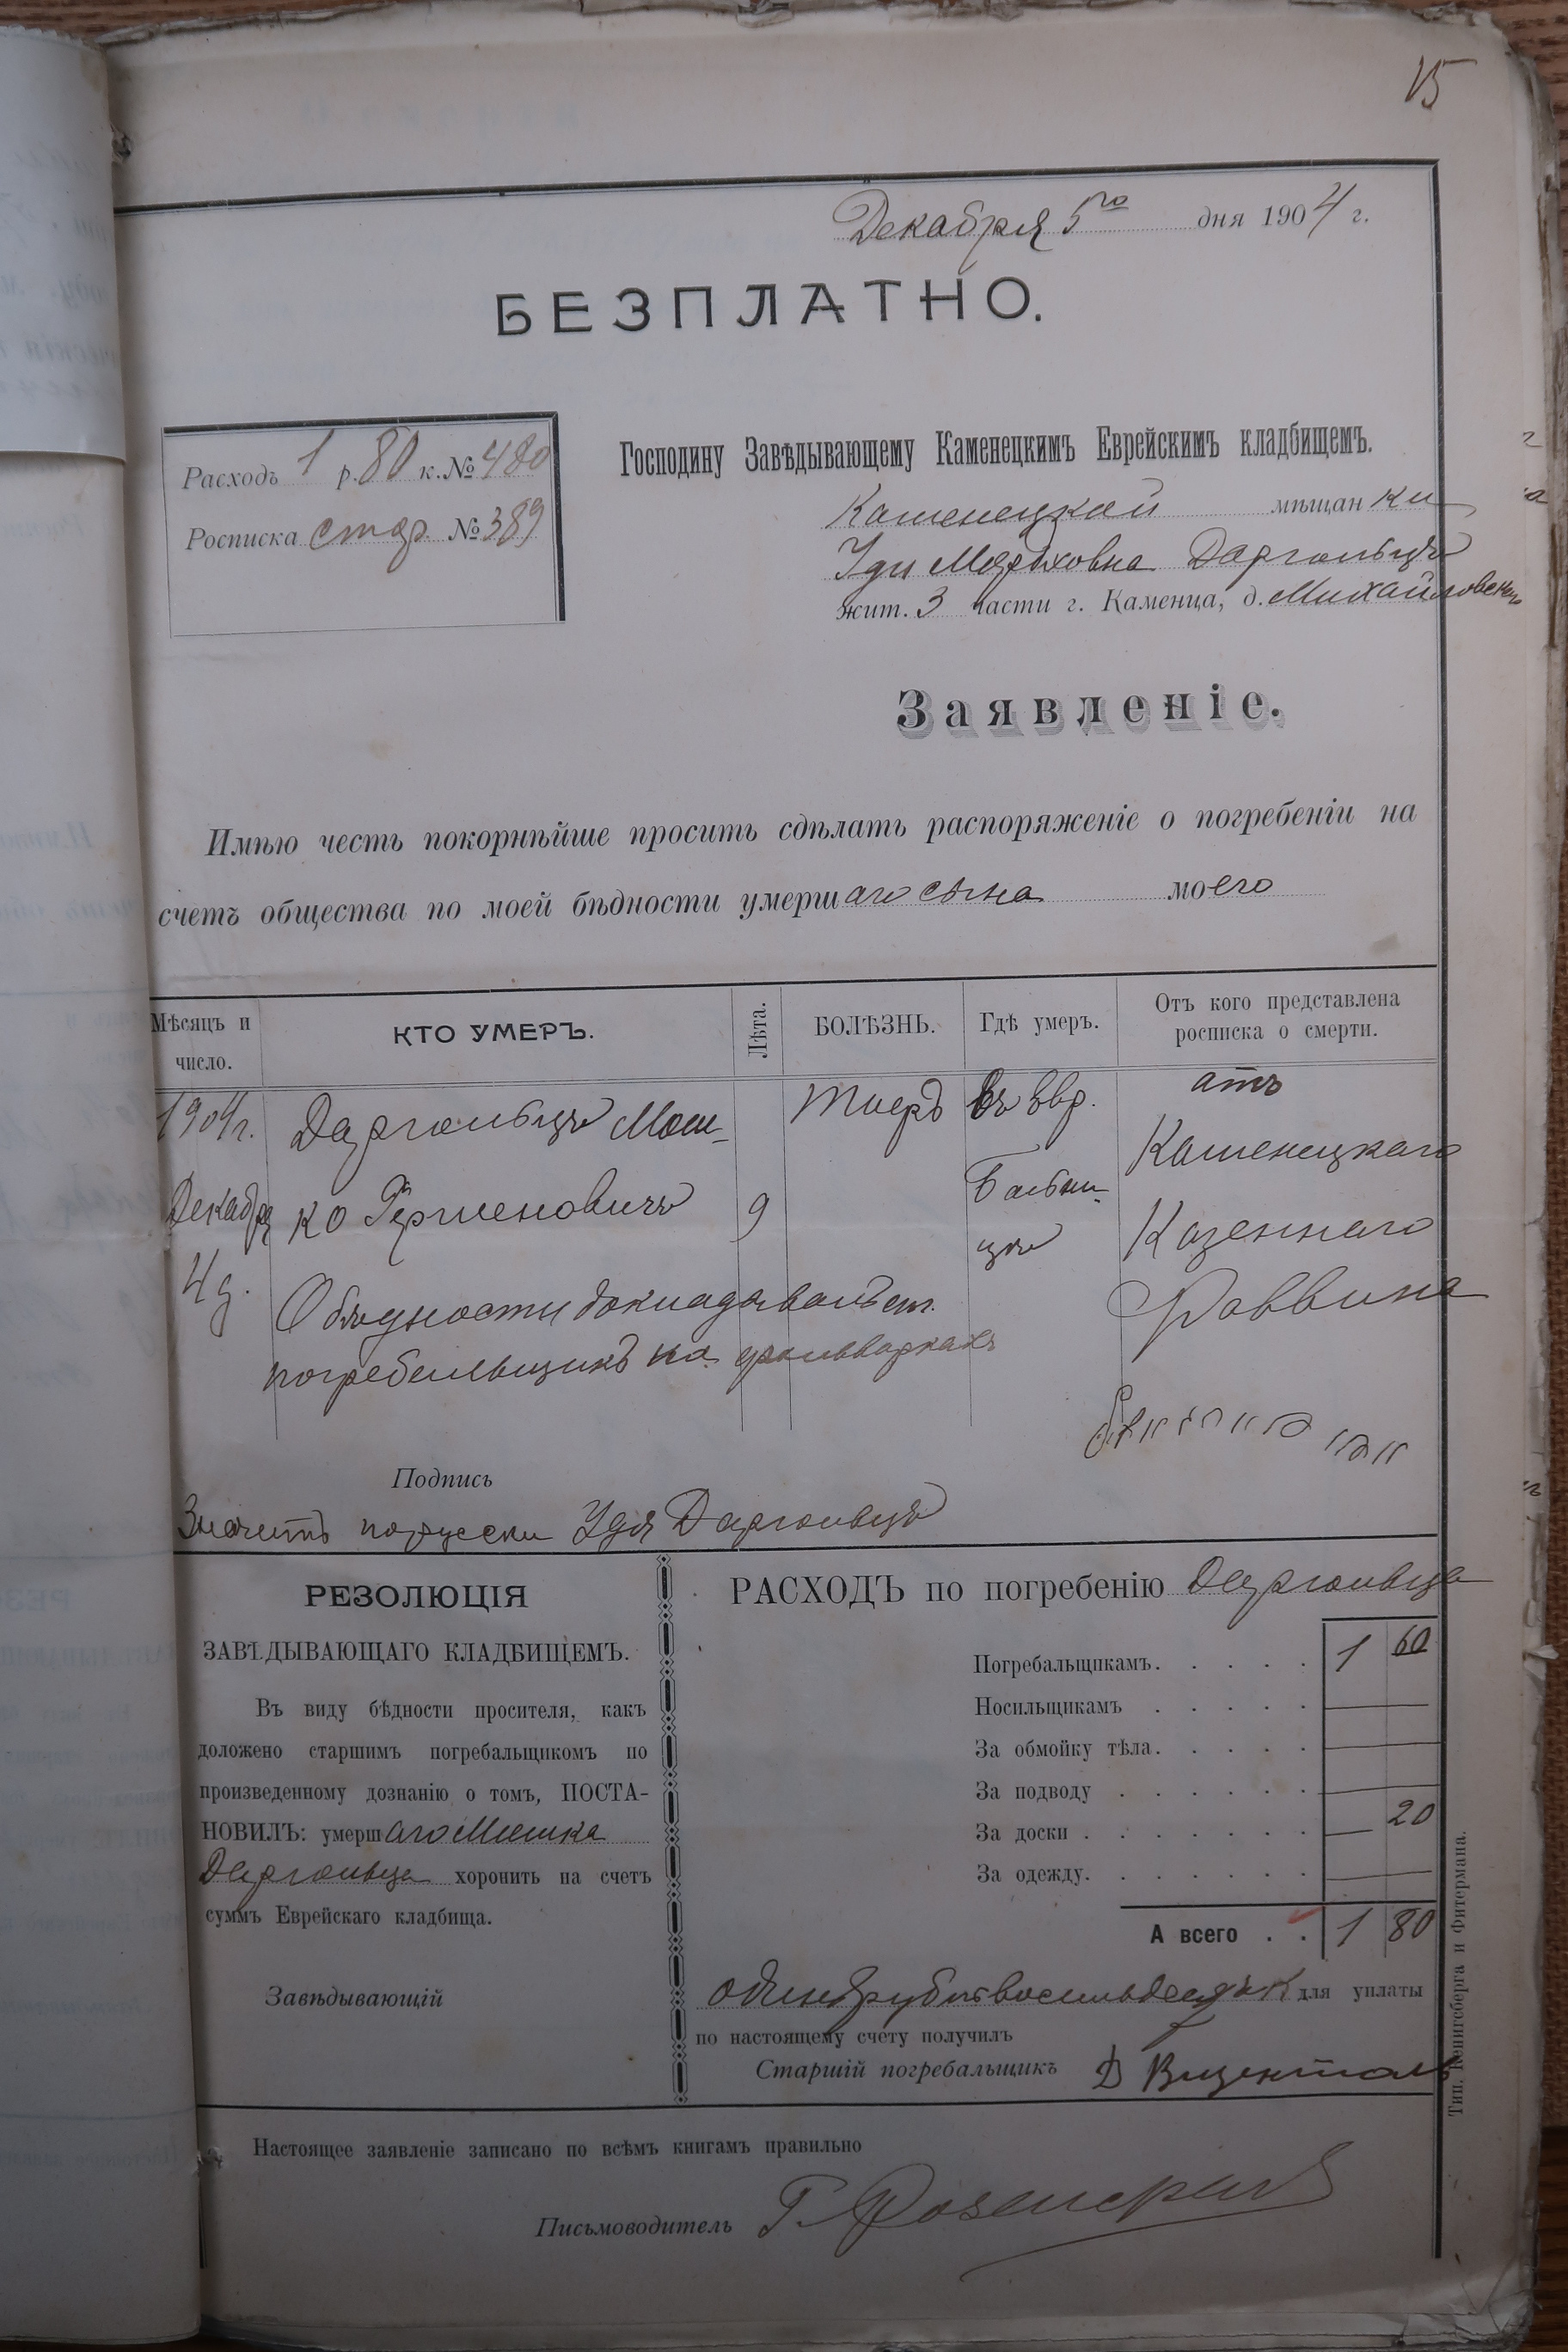 15
Декабря 5го дня 1904 г.
БЕЗПЛАТНО.
Расходъ 1 р. 80 к. № 480
Росписка стар. № 389
Господину Завѣдывающему Каменецкимъ Еврейскимъ кладбищемъ.
Каменецкой мѣщанки
Иди Даргольцъ
жит. 3 части г. Каменца, д.
Заявленіе.
Имѣю честь покорнѣйше просить сдѣлать распоряженіе о погребеніи на
счетъ общества по моей бѣдности умершаго сына моего
Мѣсяцъ и число.
КТО УМЕРЪ.
Лѣта.
БОЛѢЗНЬ.
Гдѣ умеръ.
Отъ кого представлена росписка о смерти.
1904 г. Даргольцъ Мош- въ Евр. отъ
Каменецкаго
Декабря ко 9 больни- Казеннаго
4 д. цѣ Раввина
О бѣдности докладывалъ ст.
погребельщикъ на фольваркахъ
Подпись
Значитъ порусски Идя Даргольцъ
РЕЗОЛЮЦІЯ
ЗАВѢДЫВАЮЩАГО КЛАДБИЩЕМЪ.
Въ виду бѣдности просителя, какъ
доложено старшимъ погребальщикомъ по
произведенному дознанію о томъ, ПОСТА-
НОВИЛЪ: умершаго Мошка
Даргольца хоронить на счетъ
суммъ Еврейскаго кладбища.
Завѣдывающій
РАСХОДЪ по погребенію Даргольца
Погребальщикамъ. . . . . 1 60
Носильщикамъ . . . . .
За обмойку тѣла. . . . .
За подводу . . . . . .
За доски . . . . . . . — 20
За одежду. . . . . . .
А всего . . 1 80
одинъ рубль восемьдесятъ к для уплаты
по настоящему счету получилъ
Старшій погребальщикъ Д Виценталь
Тип. Кенигсберга и Фитермана.
Настоящее заявленіе записано по всѣмъ книгамъ правильно
Письмоводитель Г.